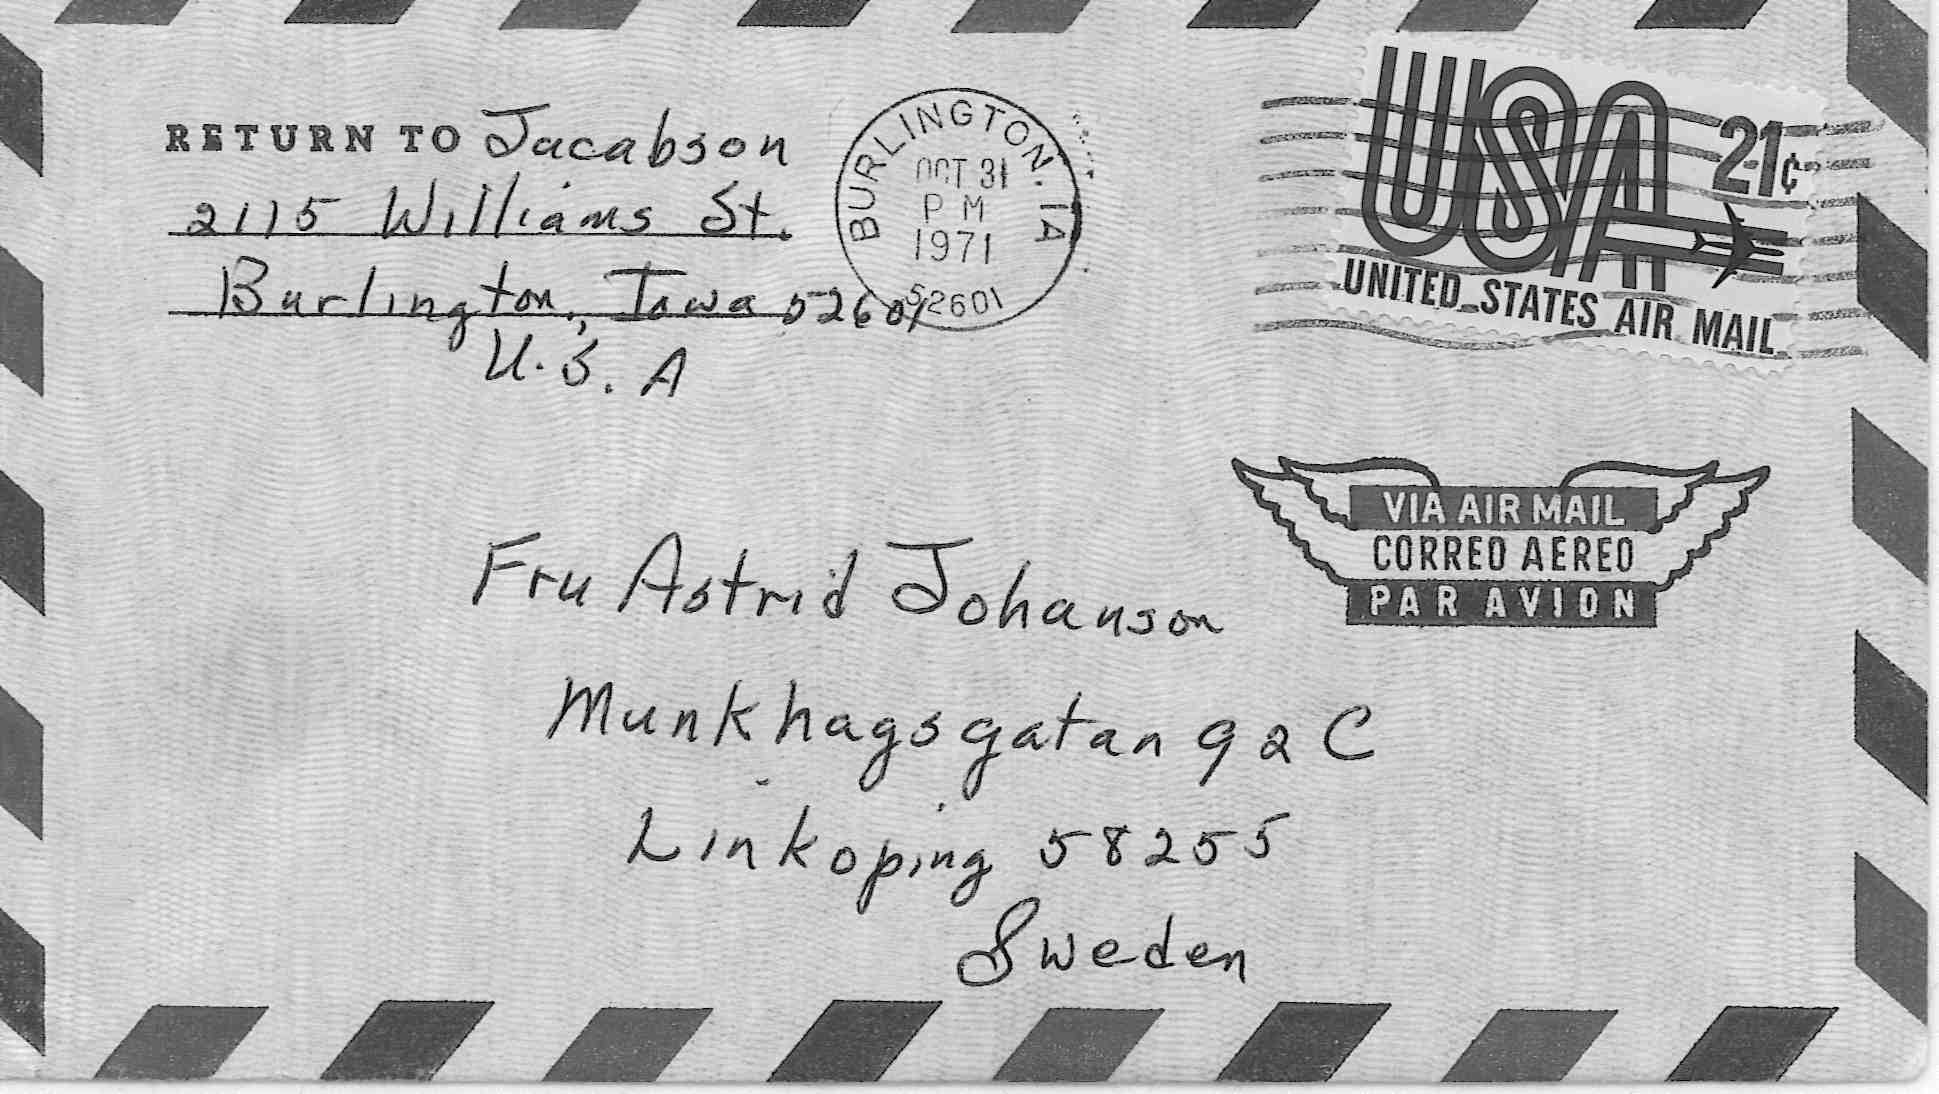 RETURN TO Jacabson
2115 Williams St.
Burlington, Iowa 52601
U.S.A
BURLINGTON. IA
OCT 31
PM
1971
52601
USA 21¢
UNITED STATES AIR MAIL
VIA AIR MAIL
CORREO AEREO
PAR AVION
Fru Astrid Johanson
Munkhagsgatan 92 C
Linkoping 58255
Sweden